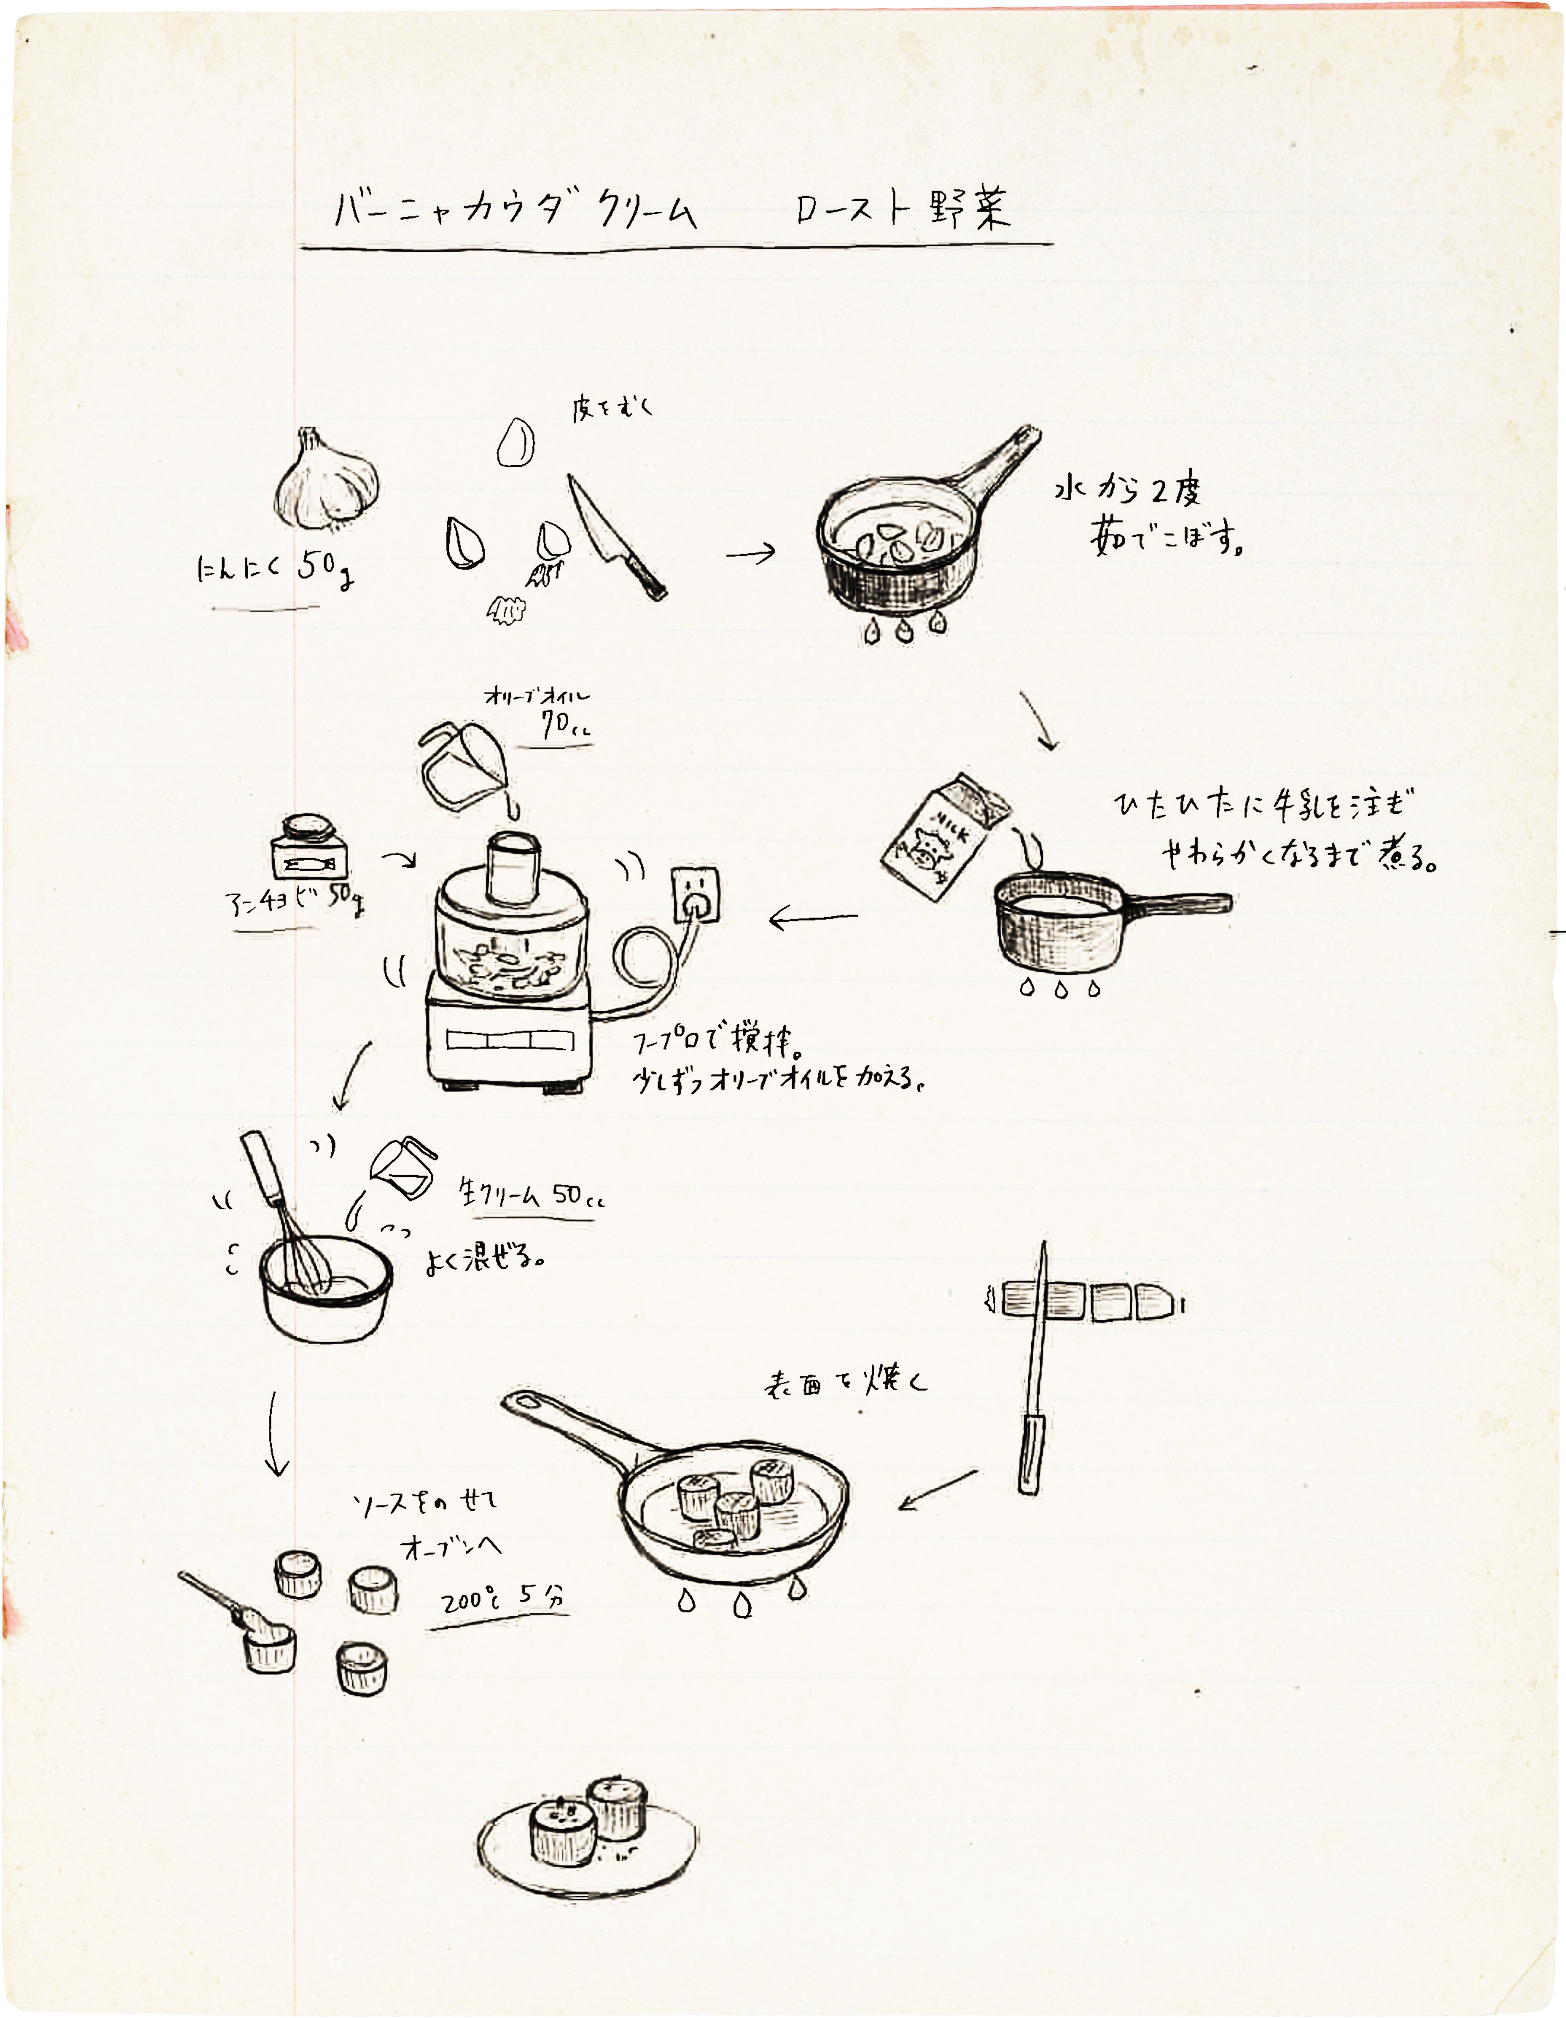 バーニャカウダクリーム ロースト野菜
皮をむく
にんにく 50g
水から2度
茹でこぼす。
オリーブオイル
70cc
アンチョビ 50g
MILK
ひたひたに牛乳を注ぎ
やわらかくなるまで煮る。
フープロで撹拌。
少しずつオリーブオイルを加える。
生クリーム 50cc
よく混ぜる。
表面を焼く
ソースをのせて
オーブンへ
200℃ 5分